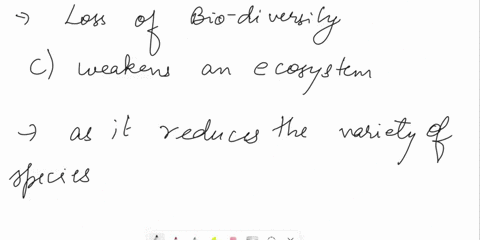 → Loss of Bio-diversity
c) weakens an ecosystem
→ as it reduces the variety of
species